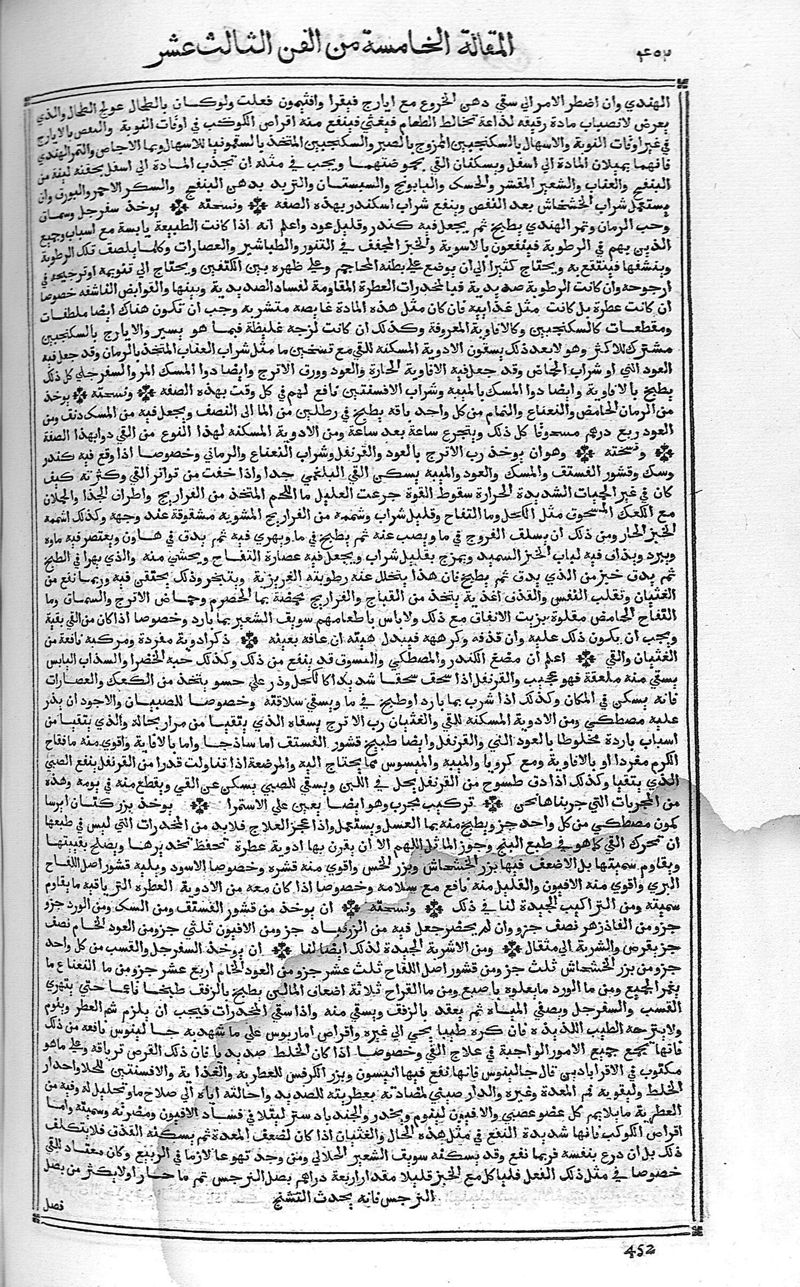 ٤٥٢ المقالة الخامسة من الفن الثالث عشر
الهندي وان اضطر الامر الي سقي دهن الخروع مع ايارج فيقرا وافتيمون فعلت ولو كان بالطحال عولج الطحال والذي
يعرض لانصباب مادة رقيقة لذاعة تخالط الطعام فيغثي فينفع منه اقراص الكوكب في اوقات النوبة والنفض بالايارج
في غير اوقات النوبة والاسهال بالسكنجبين الممزوج بالصبر والسكنجبين المتخذ بالسقمونيا للاسهال وبما الاجاص والتمر الهندي
فانهما يميلان المادة الي اسفل ويسكنان القي بحموضتهما ويجب في مثله ان تجذب المادة الي اسفل بحقنة لينة من
البنفسج والعناب والشعير المقشر والحسك والبابونج والسبستان والتربد بدهن البنفسج والسكر الاحمر والبورق وان
يستعمل شراب الخشخاش بعد النفض وينفع شراب اسكندر بهذه الصفة ونسخته يوخذ سفرجل وسماق
وحب الرمان وتمر الهندي يطبخ ثم يجعل فيه كندر وقليل عود واعلم انه اذا كانت الطبيعة يابسة مع اسباب وجميع
الذين بهم في الرطوبة فينفعون بالاسوية والخبز المجفف في التنور والطباشير والعصارات وكلما يلصق تلك الرطوبة
وينشفها فينتفع به ويحتاج كثيرا الي ان يوضع علي بطنه المحاجم وعلي ظهره بين الكتفين ويحتاج الي تنويمه او ترجيحه في
ارجوحة وان كانت الرطوبة صديدية فبالمخدرات العطرة المقاومة لفساد الصديدية وبينها والقوابض الناشفة خصوصا
ان كانت عطرة بل كانت مثل غذايية فان كان مثل هذه المادة غايصة متشربة وجب ان تكون هناك ايضا ملطفات
ومقطعات كالسكنجبين وكالافاوية المعروفة وكذلك ان كانت لزجة غليظة فيما هو يسير والايارج بالسكنجبين
مشترك للاكثر وهولا بعد ذلك يسقون الادوية المسكنة للقي مع تسخين ما مثل شراب العناب المتخذ بالرمان وقد جعل فيه
العود الني او شراب الحماض وقد جعل فيه الافاوية الحارة والعود وورق الاترج وايضا دوا المسك المر والسفرجلي كل ذلك
يطبخ بالافاوية وايضا دوا المسك بالميبه وشراب الافسنتين نافع لهم في كل وقت بهذه الصفة ونسخته يوخذ
من الرمان الحامض والنعناع والنمام من كل واحد باقة يطبخ في رطلين من الما الي النصف ويجعل فيه من المسك دنق ومن
العود ربع درهم مسحوقا كل ذلك ويتجرع ساعة بعد ساعة ومن الادوية المسكنة لهذا النوع من القي دوا بهذا الصفة
ونسخته وهو ان يوخذ رب الاترج بالعود والقرنفل وشراب النعناع والرماني وخصوصا اذا وقع فيه كندر
وسك وقشور الفستق والمسك والعود والميبه يسكن القي البلغمي جدا واذا خفت من تواتر القي وكثرته كيف
كان في غير الحميات الشديدة الحرارة سقوط القوة جرعت العليل ما اللحم المتخذ من الفراريج واطراف الجدا والحملان
مع الكعك المسحوق مثل الكحل وما التفاح وقليل شراب وشممه من الفراريج المشوية مشقوقة عند وجهه وكذلك اشممه
الخبز الحار ومن ذلك ان يسلق الفروج في ما ويصب عنه ثم يطبخ في ما ويهري فيه ثم يدق في هاون ويعتصر فيه ماوه
ويبرد ويذاف فيه لباب الخبز السميد ويمزج بقليل شراب ويجعل فيه عصارة التفاح ويحشي منه والذي يهرا في الطبخ
ثم يدق خير من الذي يدق ثم يطبخ فان هذا يتحلل عنه رطوبته الغريزية ويتبخر وذلك يحتقن فيه وربما نفع من
الغثيان وتقلب النفس والقذف اغذية يتخذ من القباج والفراريج محمضة بما الحصرم وحماض الاترج والسماق وما
التفاح الحامض مقلوة بزيت الانفاق مع ذلك ولا باس باطعامهم سويق الشعير بما بارد وخصوصا اذا كان من القي بقية
ويجب ان يكون ذلك عليه وان قذفه وكرهه فيبدل هيئته ان عافه بعينه ذكر ادوية مفردة ومركبة نافعة من
الغثيان والقي اعلم ان مضغ الكندر والمصطكي والسوق قد ينفع من ذلك وكذلك حبة الخضرا والسذاب اليابس
يسقي منه ملعقة فهو عجيب والقرنفل اذا سحق سحقا شديدا كالكحل وذر علي حسو يتخذ من الكعك والعصارات
فانه يسكن في المكان وكذلك اذا شرب بما بارد او طبخ في ما ويسقي سلاقته وخصوصا للصبيان والاجود ان يذر
عليه مصطكي ومن الادوية المسكنة للقي والغثيان رب الاترج يسقاه الذي يتقيا من مرار بحاله والذي يتقيا من
اسباب باردة مخلوطا بالعود الني والقرنفل وايضا طبيخ قشور الفستق اما ساذجا واما بالافاوية واقوي منه ما فقاح
الكرم مفردا او بالافاوية ومع كرويا والميبه والميسوس مما يحتاج اليه والمرضعة اذا تناولت قدرا من القرنفل ينفع الصبي
الذي يتقيا وكذلك اذا دق طسوج من القرنفل يحل في اللبن ويسقي للصبي يسكن عن القي ويقطع منه في يومه وهذه
من المجربات التي جربناها نحن تركيب مجرب وهو ايضا يعين علي الاستمرا يوخذ بزر كتان ايرسا
كمون مصطكي من كل واحد جزو يطبخ منه بما العسل ويستعمل واذا عجز العلاج فلا بد من المخدرات التي ليس في طبعها
ان تحرك القي كما هو في طبع البنج وجوز الماثل اللهم الا ان يقرن بها ادوية عطرة تحفظ تخديرها ويصلح بقيتها
ويقاوم سميتها بل الاضعف فيها بزر الخشخاش وبزر الخس واقوي منه قشره وخصوصا الاسود ويليه قشور اصل اللفاح
البري واقوي منه الافيون والقليل منه نافع مع سلامة وخصوصا اذا كان معه من الادوية العطره الترياقيه ما يقاوم
سميته ومن التراكيب الجيدة لنا في ذلك ونسخته ان يوخذ من قشور الفستق ومن السك ومن الورد جزو
جزو من الفاذزهر نصف جزو وان لم يحضر جعل فيه من الزرنباد جزو من الافيون ثلثي جزو من العود الخام نصف
جزو يقرض والشربة الي مثقال ومن الاشربة الجيدة لذلك ايضا لنا ان يوخذ السفرجل والقسب من كل واحد
جزو من بزر الخشخاش ثلث جزو من قشور اصل اللفاح ثلث عشر جزو من العود الخام اربع عشر جزو من ما النعناع ما
يغمر الجميع ومن ما الورد ما يعلوه باصبع ومن ما القراح ثلاثة اضعاف المالين يطبخ بالرفق طبخا ناعما حتي يتهري
القسب والسفرجل ويصفي المياه ثم يعقد بالرفق ويسقي منه واذا سقي المخدرات فيجب ان يلزم شم العطر وينوم
ولا يترحه الطيب اللذيذ فان كره طيبا يحي الي غيره واقراص اماريوس علي ما شهد به جالينوس نافعة من ذلك
فانها تجمع جميع الامور الواجبة في علاج القي وخصوصا اذا كان الخلط صديديا فان ذلك القرص ترياقه وعلي ما هو
مكتوب في الاقراباذين قال جالينوس فانها نفع فيها انيسون وبزر الكرفس للعطرية والغذاية والافسنتين للجلا واحدار
الخلط وليقويه فم المعدة وغيره والدار صيني المضادته بعطريته للصديد واحالته اياه الي صلاح ما وتحليل له وفيه من
العطرية ما يلايم كل عضو عصبي والافيون لينوم ويخدر والجندبادستر ليتلافي فساد الافيون ومضرته وسميته واما
اقراص الكوكب فانها شديدة النفع في مثل هذه الحال والغثيان اذا كان لضعف المعدة ثم يسكنه القذف فلا يتكلف
ذلك بل ان درع بنفسه فربما نفع وقد يسكنه سويق الشعير الحلالي ومن وجد تهوعا لازما في الربيع وكان معتاد للقي
خصوصا في مثل ذلك الفعل فلياكل مع الخبز قليلا مقدار اربعة دراهم بصل النرجس ثم ما حار اولا يكثر من بصل
النرجس فانه يحدث التشنج
فصل
452